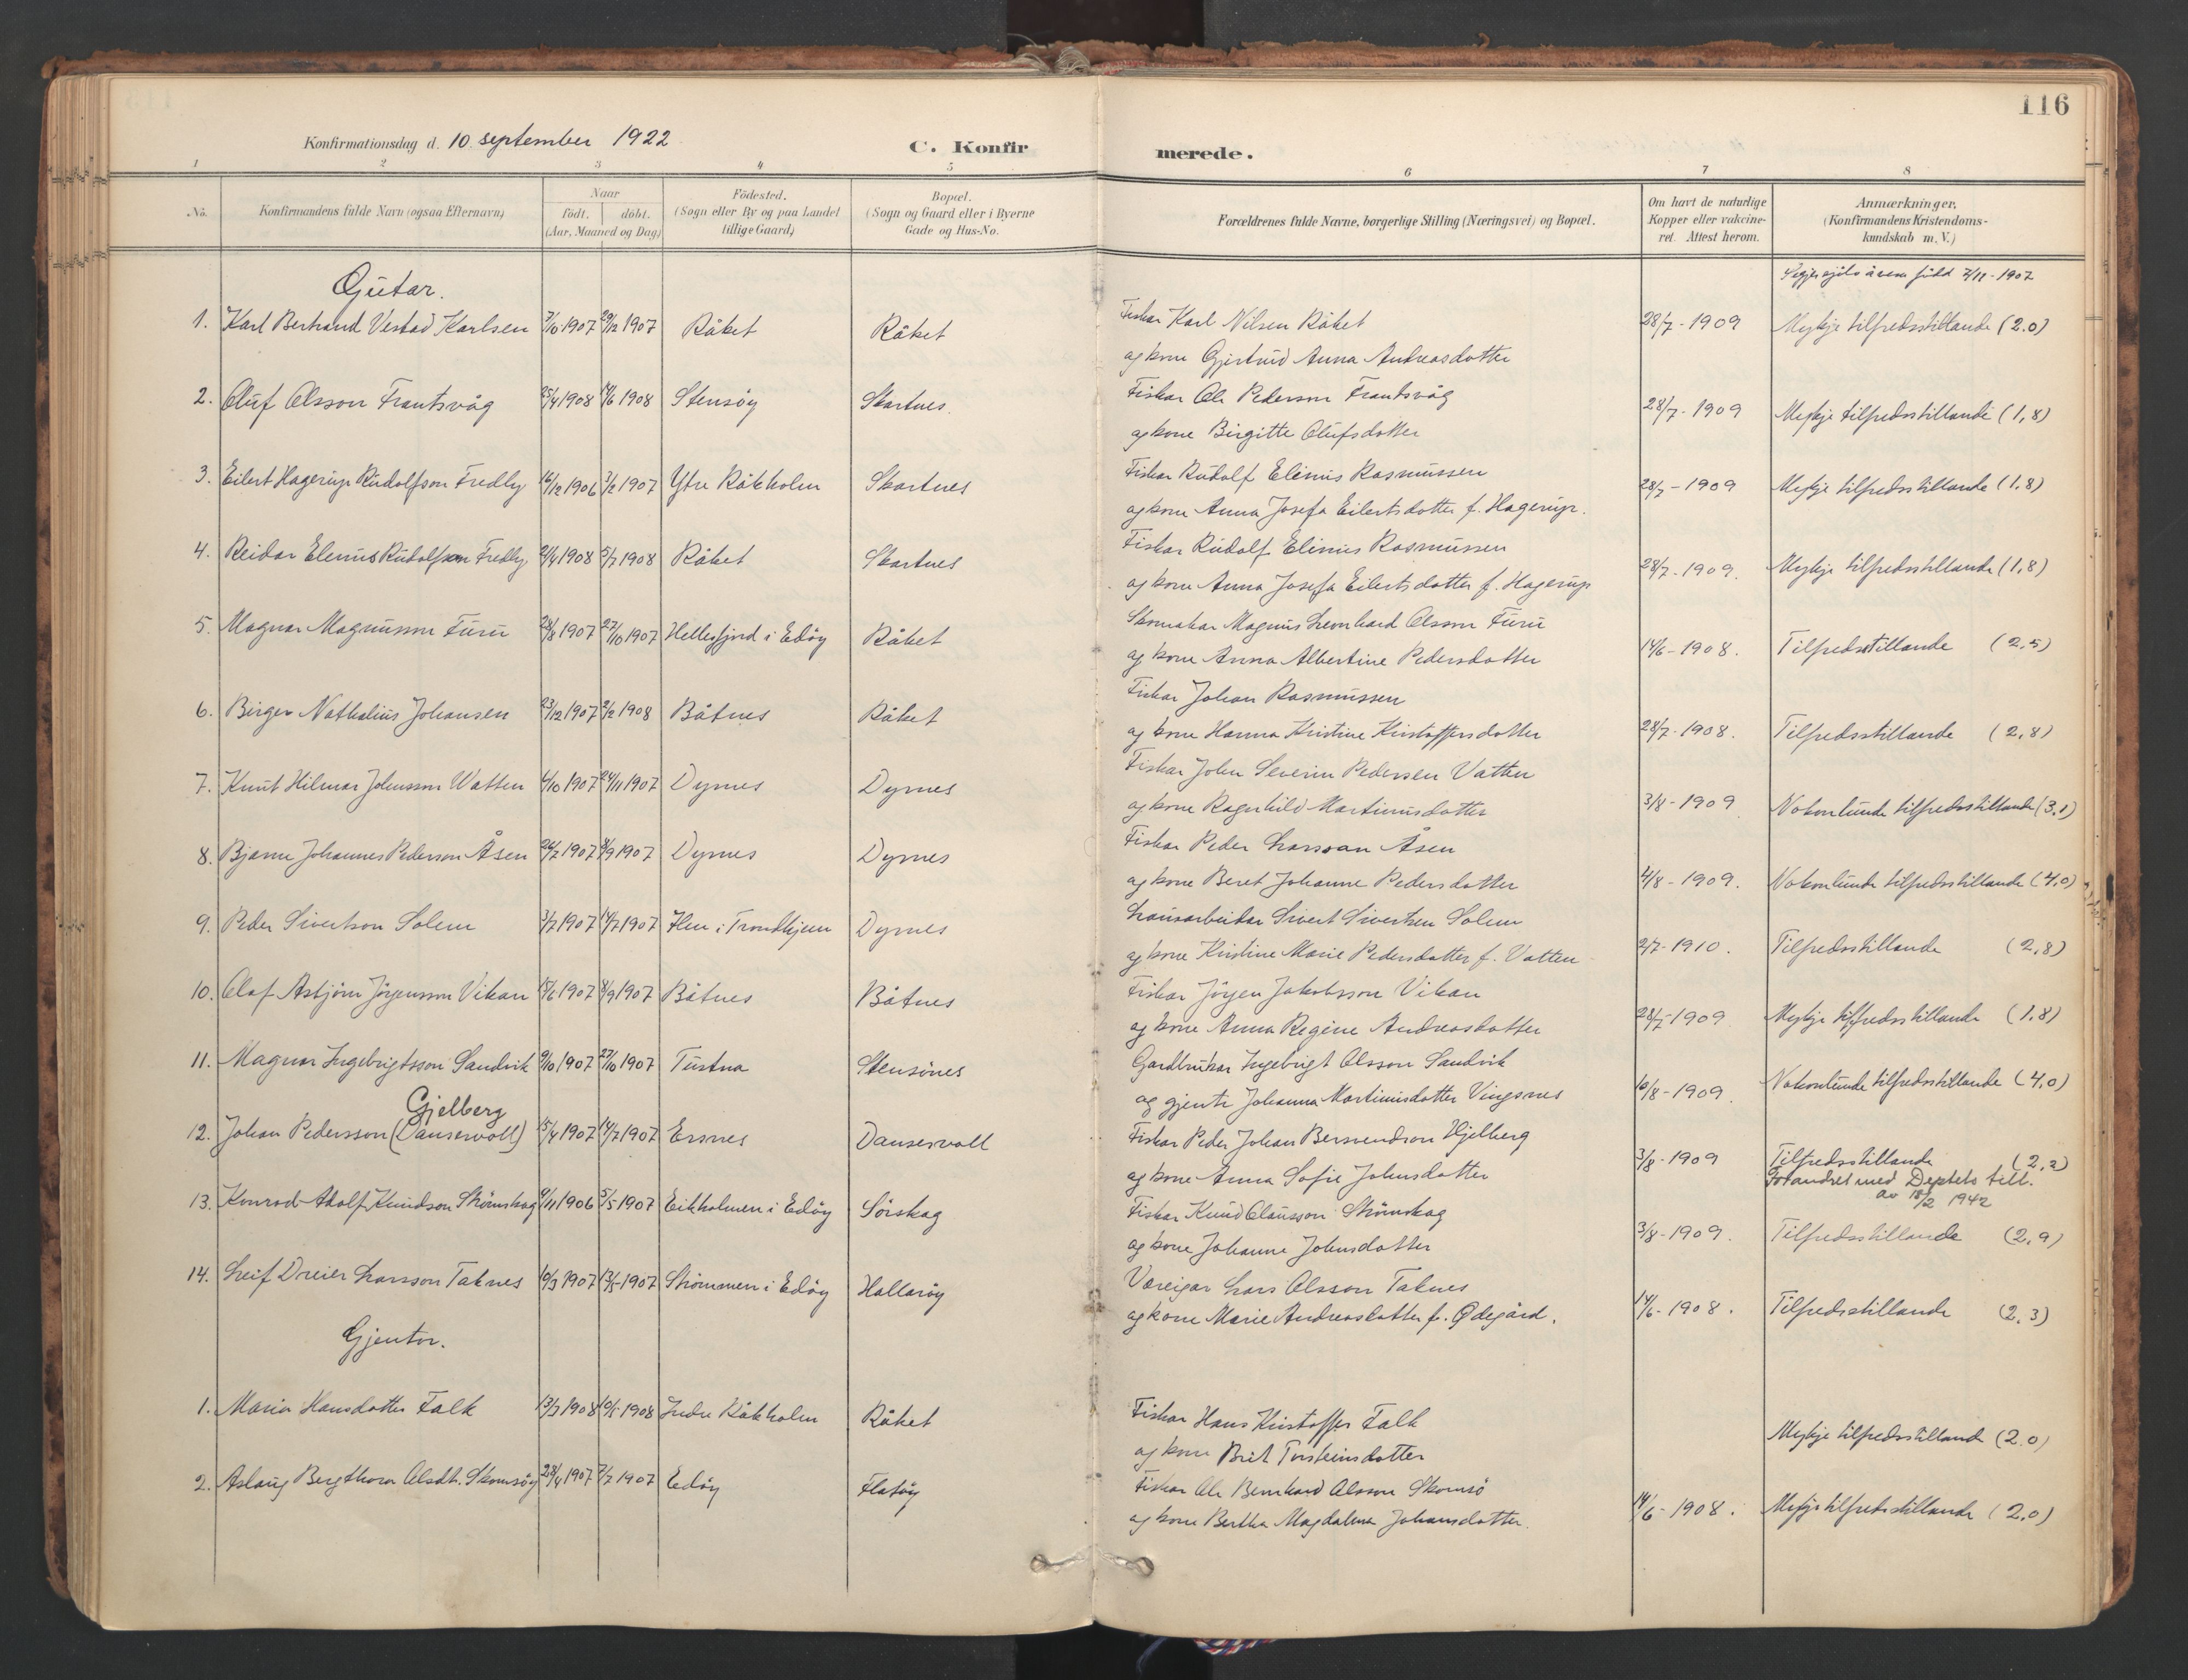 116
Konfirmationsdag d. 10 september 1922
C. Konfirmerede.
1 2 3 4 5 6 7 8
No.
Konfirmandens fulde Navn (ogsaa Efternavn)
Naar
födt. döbt.
(Aar, Maaned og Dag)
Födested.
(Sogn eller By og paa Landet
tillige Gaard)
Bopæl.
(Sogn og Gaard eller i Byerne
Gade og Hus-No.
Forældrenes fulde Navne, borgerlige Stilling (Næringsvei) og Bopæl.
Om havt de naturlige
Kopper eller vakcine-
ret. Attest herom.
Anmærkninger,
(Konfirmandens Kristendoms-
kundskab m. V.)
Gutar.
født 7/11-1907
1. Karl Bertrand Vestad Karlsen 7/10 1907 29/12 1907 Råket Råket Fiskar Karl Nilsen Råket 28/7-1909 Mykje tilfredsstillande (2.0)
og kone Gjertrud Anna Andreasdotter
2. Oluf Olsson Frantsvåg 25/4 1908 14/6 1908 Stensøy Skartnes Fiskar Ole Pederson Frantsvåg 28/7-1909 Mykje tilfredsstillande (1,8)
og kone Birgitte Olufsdotter
3. Eilert Hagerup Rudolfson Fredly 16/12 1906 3/2 1907 Ytre Råkholm Skartnes Fiskar Rudolf Elenus Rasmussen 28/7-1909 Mykje tilfredsstillande (1,8)
og kone Anna Josefa Eilertsdotter f. Hagerup.
4. Reidar Elenus Rudolfson Fredly 2/4 1908 5/7 1908 Råket Skartnes Fiskar Rudolf Elenus Rasmussen 28/7-1909. Mykje tilfredsstillande (1,8)
og kone Anna Josefa Eilertsdotter f. Hagerup
5. Magnar Magnusson Furu 28/8 1907 27/10 1907 Hellesfjord i Edøy Råket Skomakar Magnus Leonhard Olsson Furu 14/6-1908. Tilfredsstillande (2,5)
og kone Anna Albertine Pedersdotter
6. Birger Nathalius Johansen 23/12 1907 2/2 1908 Båtnes Råket Fiskar Johan Rasmussen 28/7-1908. Tilfredsstillande (2,8)
og kone Hanna Kristine Kristoffersdotter
7. Knut Hilmar Johnsson Watten 4/10 1907 24/11 1907 Dyrnes Dyrnes Fiskar John Severin Pedersen Vatten 3/8-1909 Nokonlunde tilfredsstillande (3.1)
og kone Ragnhild Martinusdotter
8. Bjarne Johannes Pederson Åsen 24/7 1907 8/9 1907 Dyrnes Dyrnes Fiskar Peder Larsson Åsen 4/8-1909. Nokonlunde tilfredsstillande (4,0)
og kone Beret Johanne Pedersdotter
9. Peder Sivertson Solem 3/7 1907 14/7 1907 Ilen i Trondhjem Dyrnes Lausarbeidar Sivert Sivertsen Solem 2/7-1910. Tilfredsstillande (2,8)
og kone Kristine Marie Pedersdotter f. Vatten
10. Olaf Asbjørn Jörgensson Vikan 15/6 1907 8/9 1907 Båtnes Båtnes Fiskar Jörgen Jakobsson Vikan 28/7-1909 Mykje tilfredsstillande (1,8)
og kone Anna Regine Andreasdotter
11. Magnar Ingebrigtsson Sandvik 9/10 1907 27/10 1907 Tustna Stensönes Gardbrukar Ingebrigt Olsson Sandvik 10/8-1909. Nokonlunde tilfredsstillande (4,0)
og gjente Johanna Martinusdotter Vingsnes
Gjelberg
12. Johan Pedersson (Danservoll) 15/4 1907 14/7 1907 Ersnes Danservoll Fiskar Peder Johan Bersvendson Hjelberg 3/8-1909 Tilfredsstillande (2,2)
og kone Anna Sofie Johnsdotter
Forandret med Deptets till.
av 18/2 1942
13. Konrad Adolf Knudson Strömskag 9/11 1906 5/5 1907 Eikholmen i Edøy Sörskag Fiskar Knud Clausson Strömskag 3/8-1909. Tilfredsstillande (2,9)
og kone Johanne Johnsdotter
14. Leif Dreier Larsson Taknes 10/3 1907 13/5 1907 Strömmen i Edøy Hallarøy Væreigar Lars Olsson Taknes 14/6-1908. Tilfredsstillande (2,3)
og kone Marie Andreasdotter f. Ødegård.
Gjentor.
1. Maria Hansdotter Falk 13/3 1908 10/5 1908 Indre Råkholm Råket Fiskar Hans Kristoffer Falk Mykje tilfredsstillande (2.0)
og kone Brit Torsteinsdotter
2. Aslaug Bergthora Olsdt. Skomsöy 28/4 1907 7/7 1907 Edøy Flatöy Fiskar Ole Bernhard Olsson Skomsö 14/6-1908. Mykje tilfredsstillande (2,0)
og kone Bertha Magdalena Johansdotter.